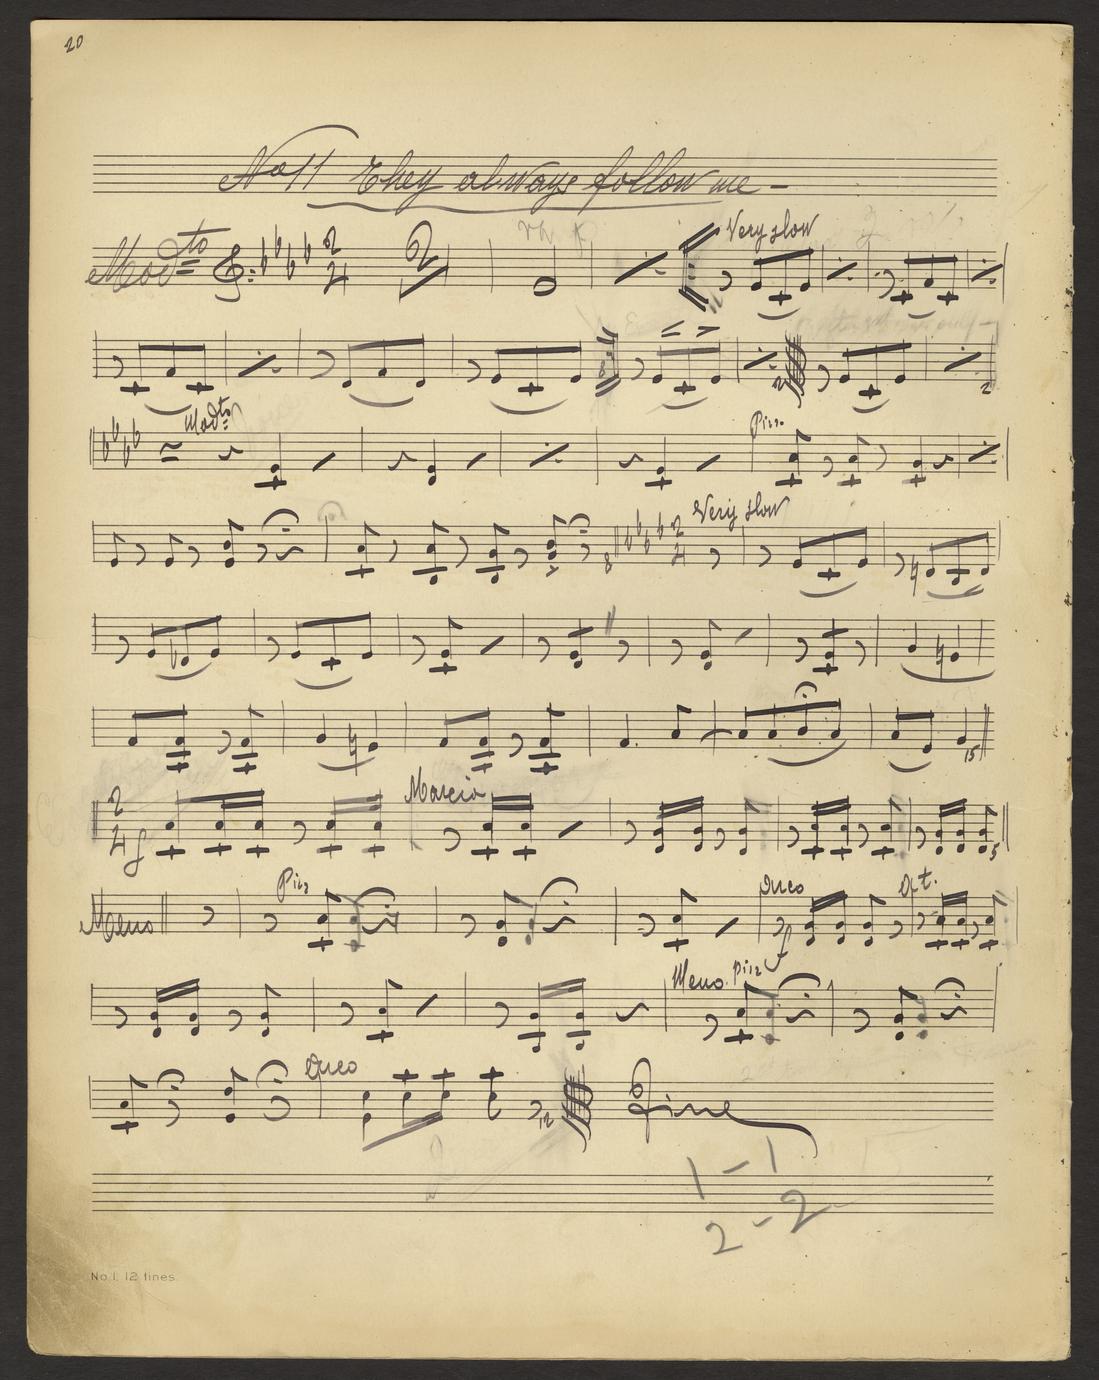 20
No 11 They always follow me -
Mod to 2 4 2 Very slow
2
Mod to Pizz.
Very slow 2 4 8
15
2 4 f Marcia 5
Meno Pizz Arco f
Meno pizz
Arco 12 Fine
1 - 1
2 - 2
No 1. 12 lines.